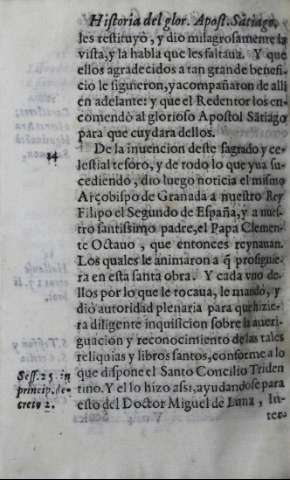 Historia del glor. Apost. Sãtiago,
les restituyò, y dio milagrosamente la
vista, y la habla que les faltaua. Y que
ellos agradecidos a tan grande benefi-
cio le siguieron, y acompañaron de alli
en adelante: y que el Redentor los en-
comendò al glorioso Apostol Sãtiago
para que cuydara dellos.
14
De la inuencion deste sagrado y ce-
lestial tesoro, y de todo lo que yua su-
cediendo, dio luego noticia el mismo
Arçobispo de Granada a nuestro Rey
Filipo el Segundo de España, y a nues-
tro santissimo padre, el Papa Clemen-
te Octauo, que entonces reynauan.
Los quales le animaron a q̃ prosiguie-
ra en esta santa obra. Y cada vno de-
llos por lo que le tocaua, le mandò, y
dio autoridad plenaria para que hizie-
ra diligente inquisicion sobre la aueri-
guacion y reconocimiento de las tales
reliquias y libros santos, conforme a lo
que dispone el Santo Concilio Triden
tino. Y el lo hizo assi, ayudandose para
esto del Doctor Miguel de Luna, In-
terᵒ
Sess. 25. in
princip. de-
creto 2.